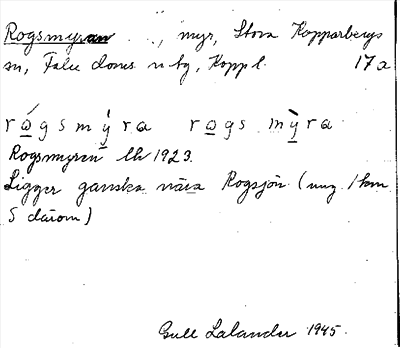 Rogsmyran .., myr, Stora Kopparbergs
sn, Falu doms. n tg, Koppl. 17a
rogsmyra rogs myra
Rogsmyren lh 1923.
Ligger ganska nära Rogsjön (ung. 1 km
S därom)
Gull Lalander 1945.